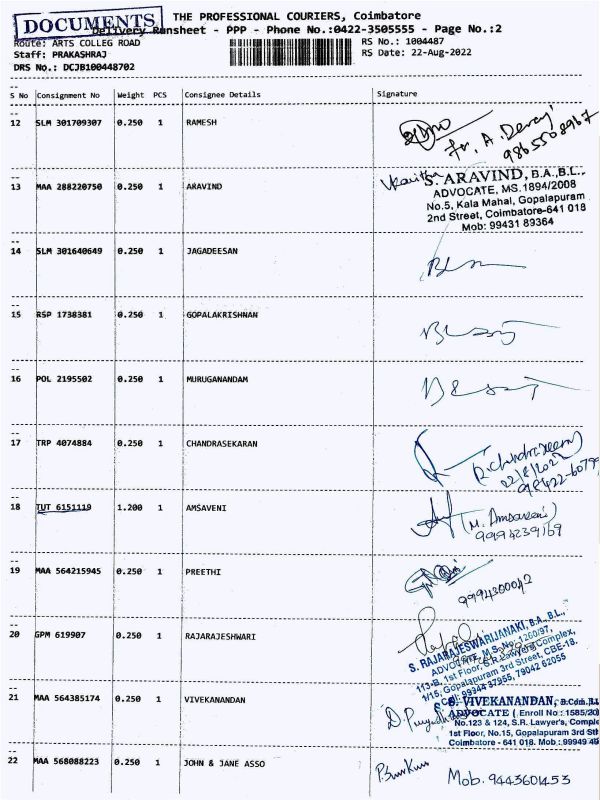 DOCUMENTS
THE PROFESSIONAL COURIERS, Coimbatore
Delivery Runsheet - PPP - Phone No.:0422-3505555 - Page No.:2
Route: ARTS COLLEG ROAD
RS No.: 1004487
Staff: PRAKASHRAJ
RS Date: 22-Aug-2022
DRS No.: DCJB100448702
S No Consignment No Weight PCS Consignee Details Signature
12 SLM 301709307 0.250 1 RAMESH
for, A. Devaji
9865508967
13 MAA 288220750 0.250 1 ARAVIND
S. ARAVIND, B.A.,B.L.,
ADVOCATE, MS.1894/2008
No.5, Kala Mahal, Gopalapuram
2nd Street, Coimbatore-641 018
Mob: 99431 89364
14 SLM 301640649 0.250 1 JAGADEESAN
15 RSP 1738381 0.250 1 GOPALAKRISHNAN
16 POL 2195502 0.250 1 MURUGANANDAM
17 TRP 4074884 0.250 1 CHANDRASEKARAN
22/8/2022
18 TUT 6151119 1.200 1 AMSAVENI
(M. Amsaveni)
9994239169
19 MAA 564215945 0.250 1 PREETHI
9994300042
20 GPM 619907 0.250 1 RAJARAJESHWARI
S. RAJARAJESWARIJANAKI, B.A., B.L.,
ADVOCATE, M.S. No: 1260/97,
113-B, 1st Floor, S.R. Lawyers Complex,
1/15, Gopalapuram 3rd Street, CBE-18.
Cell: 99944 37955, 79042 62055
21 MAA 564385174 0.250 1 VIVEKANANDAN
VIVEKANANDAN, B.Com.,B.L
ADVOCATE (Enroll No: 1585/20
No.123 & 124, S.R. Lawyer's, Comple
1st Floor, No.15, Gopalapuram 3rd St
Coimbatore - 641 018. Mob.: 99949 49
22 MAA 568088223 0.250 1 JOHN & JANE ASSO
Mob. 9443601453